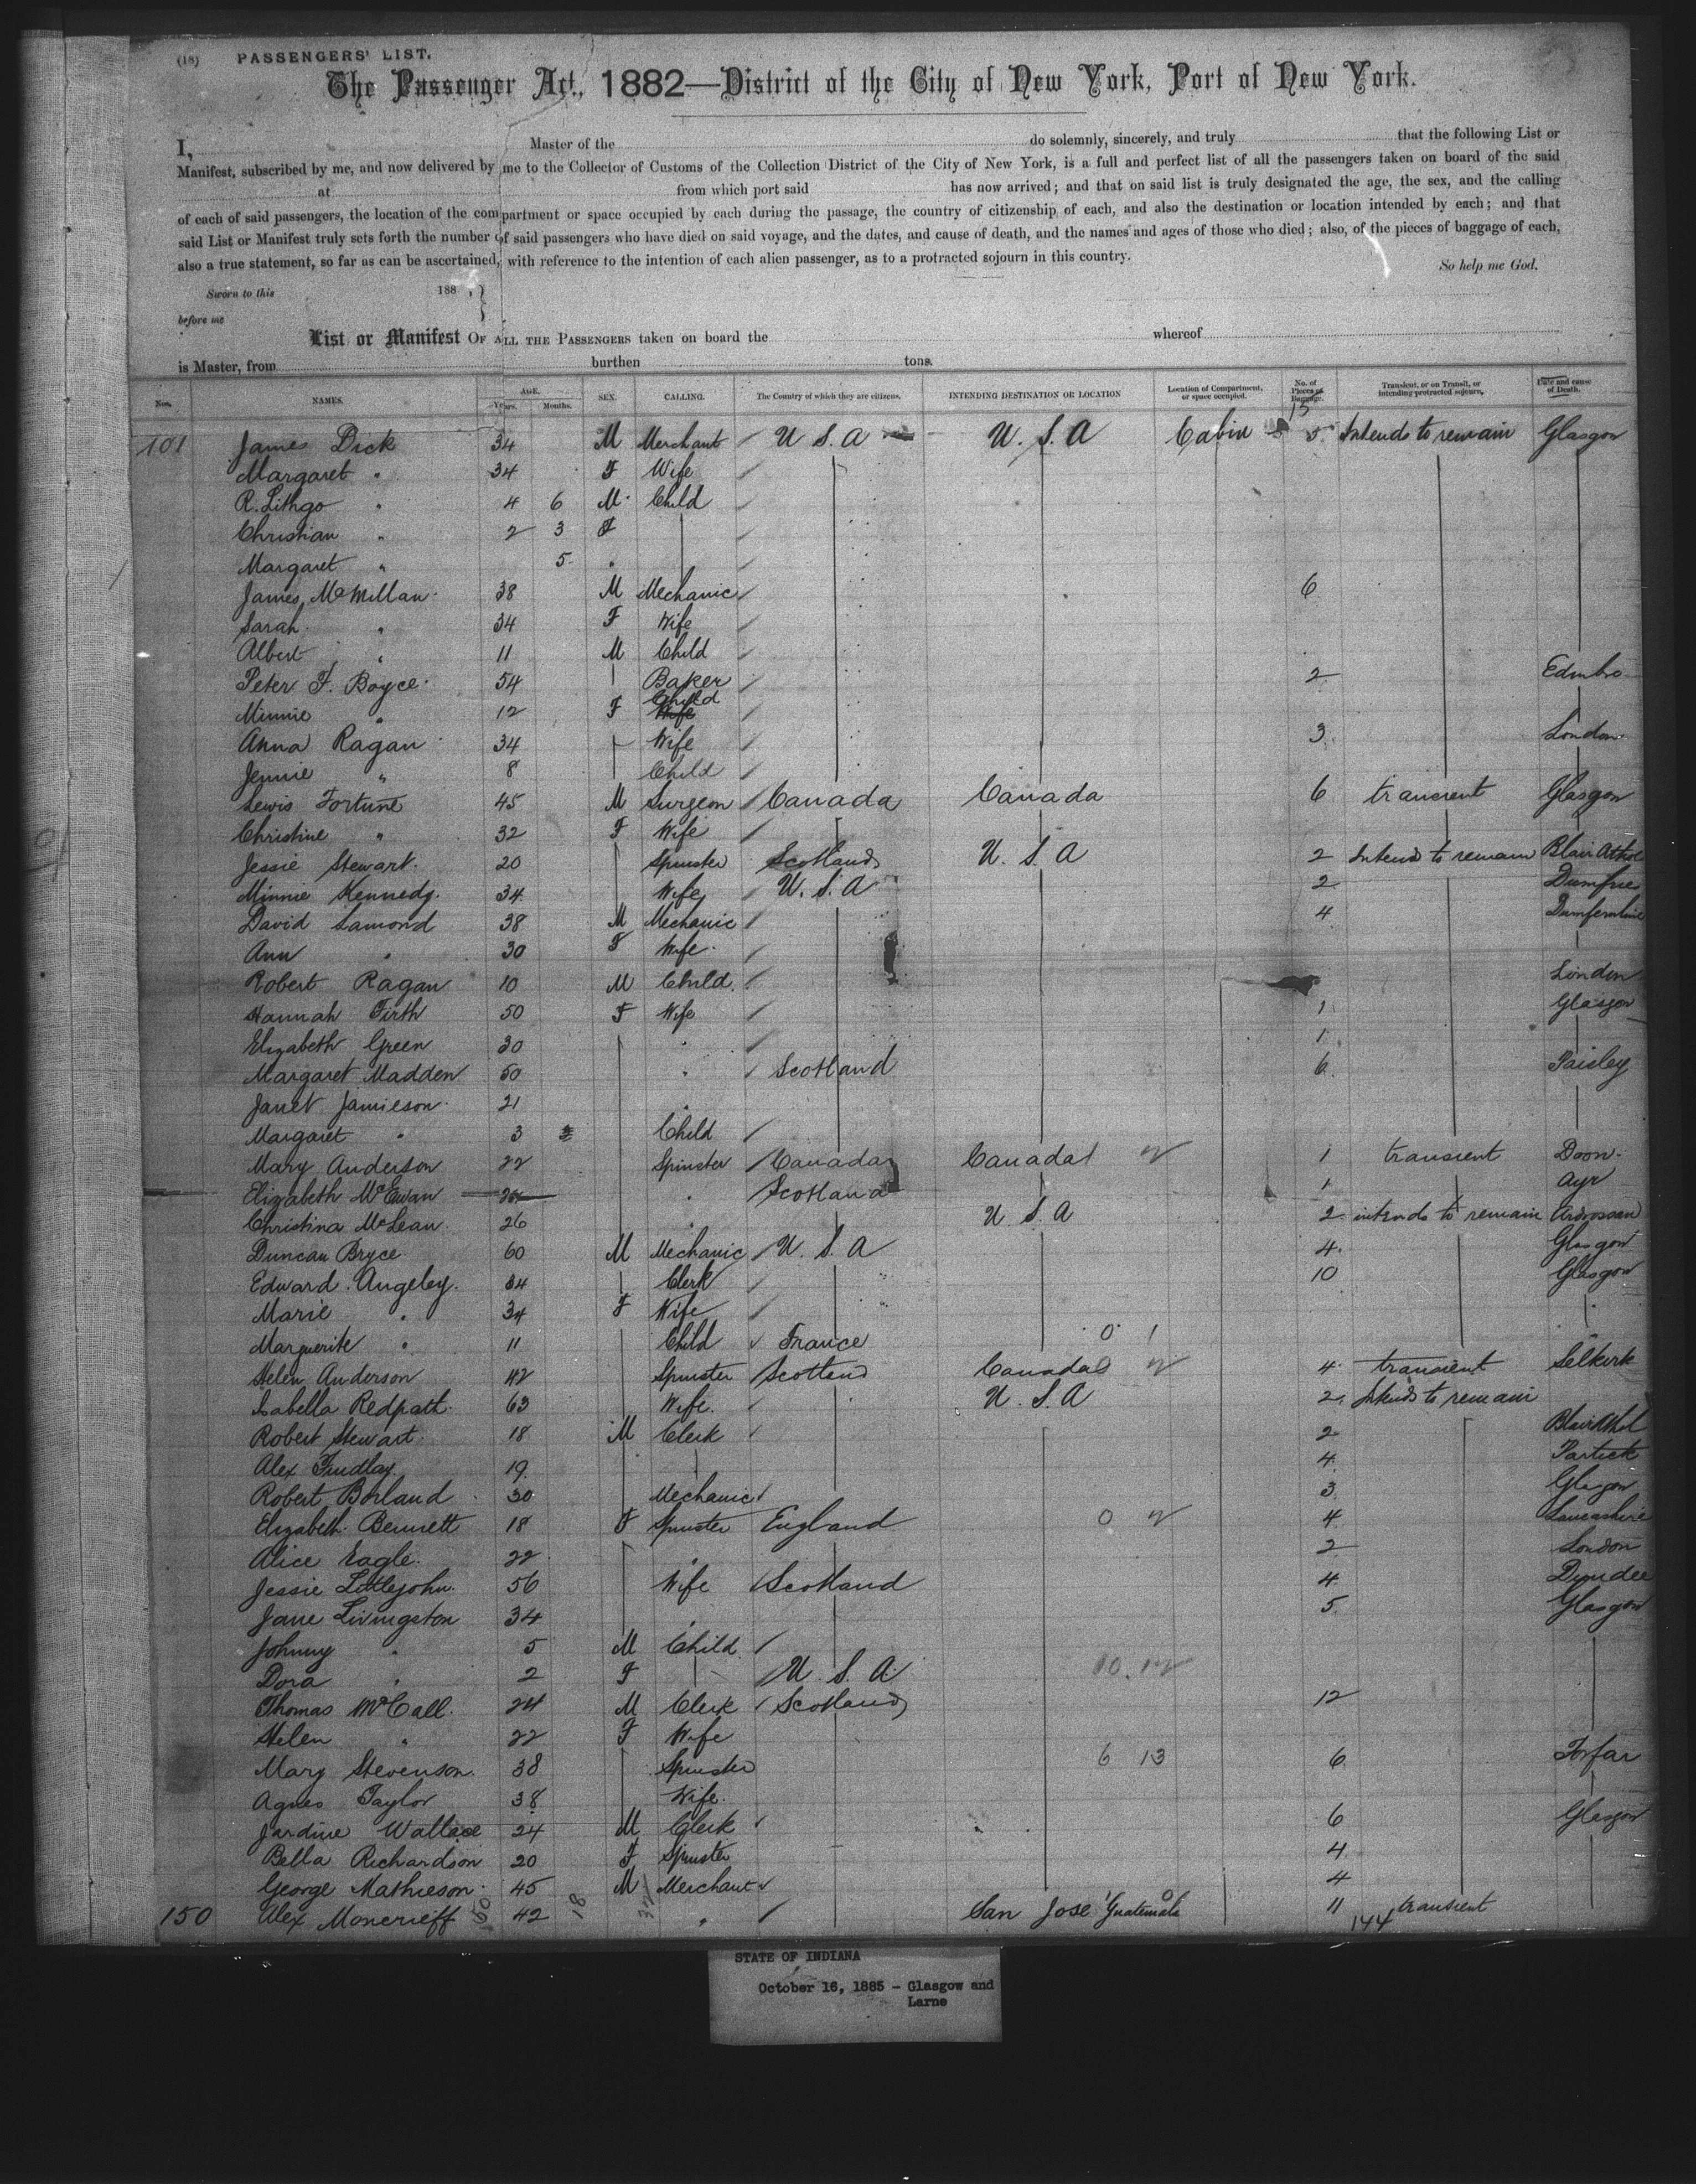 (18) PASSENGERS' LIST.
The Passenger Act, 1882—District of the City of New York, Port of New York.
I, Master of the do solemnly, sincerely, and truly that the following List or
Manifest, subscribed by me, and now delivered by me to the Collector of Customs of the Collection District of the City of New York, is a full and perfect list of all the passengers taken on board of the said
at from which port said has now arrived; and that on said list is truly designated the age, the sex, and the calling
of each of said passengers, the location of the compartment or space occupied by each during the passage, the country of citizenship of each, and also the destination or location intended by each; and that
said List or Manifest truly sets forth the number of said passengers who have died on said voyage, and the dates, and cause of death, and the names and ages of those who died; also, of the pieces of baggage of each,
also a true statement, so far as can be ascertained, with reference to the intention of each alien passenger, as to a protracted sojourn in this country. So help me God.
Sworn to this 188 ,
before me
List or Manifest OF ALL THE PASSENGERS taken on board the whereof
is Master, from burthen tons.
Nos. NAMES. AGE. Years. Months. SEX. CALLING. The Country of which they are citizens. INTENDING DESTINATION OR LOCATION Location of Compartment, or space occupied. No. of Pieces of Baggage. Transient, or on Transit, or intending protracted sojourn. Date and cause of Death.
101 James Dick 34 M Merchant U S. A U. S. A Cabin 5 Intends to remain Glasgow
Margaret " 34 F Wife
R. Lithgo " 4 6 M Child
Christian " 2 3 F
Margaret " 5 "
James McMillan 38 M Mechanic 6
Sarah " 34 F Wife
Albert " 11 M Child
Peter F. Boyce 54 Baker 2 Edinbro
Minnie " 12 F Child
Anna Ragan 34 Wife 3 London
Jennie " 8 Child
Lewis Fortune 45 M Surgeon Canada Canada 6 transient Glasgow
Christine " 32 F Wife
Jessie Stewart 20 Spinster Scotland U. S. A 2 Intends to remain Blair Athol
Minnie Kennedy 34 Wife U. S. A 2 Dumfries
David Lamond 38 M Mechanic 4 Dumfermline
Ann " 30 F Wife
Robert Ragan 10 M Child London
Hannah Firth 50 F Wife 1 Glasgow
Elizabeth Green 30 " 1
Margaret Madden 50 " Scotland 6 Paisley
Janet Jamieson 21 "
Margaret " 3 Child
Mary Anderson 22 Spinster Canada Canada 1 transient Doon
Elizabeth McEwan " Scotland 1 Ayr
Christina McLean 26 " U S A 2 intends to remain Ardrossan
Duncan Bryce 60 M Mechanic U. S. A 4 Glasgow
Edward Angeley 34 Clerk 10 Glasgow
Marie " 34 F Wife
Marguerite " 11 Child France 0 1
Helen Anderson 42 Spinster Scotland Canada 4 transient Selkirk
Isabella Redpath 63 Wife U. S. A 2 Intends to remain
Robert Stewart 18 M Clerk 2 Blair Athol
Alex Findlay 19 4 Partick
Robert Borland 30 Mechanic 3 Glasgow
Elizabeth Bennett 18 F Spinster England 0 4 Lancashire
Alice Eagle 22 " 2 London
Jessie Littlejohn 56 Wife Scotland 4 Dundee
Jane Livingston 34 " 5 Glasgow
Johnny " 5 M Child
Dora " 2 F U. S. A.
Thomas McCall 24 M Clerk Scotland 12
Helen " 22 F Wife
Mary Stevenson 38 Spinster 6 13 6 Forfar
Agnes Taylor 38 Wife
Jardine Wallace 24 M Clerk 6 Glasgow
Bella Richardson 20 F Spinster 4
George Mathieson 45 M Merchant 4
150 Alex Moncrieff 42 " San Jose Guatemala 11 transient
150 18 144
STATE OF INDIANA
October 16, 1885 - Glasgow and
Larne